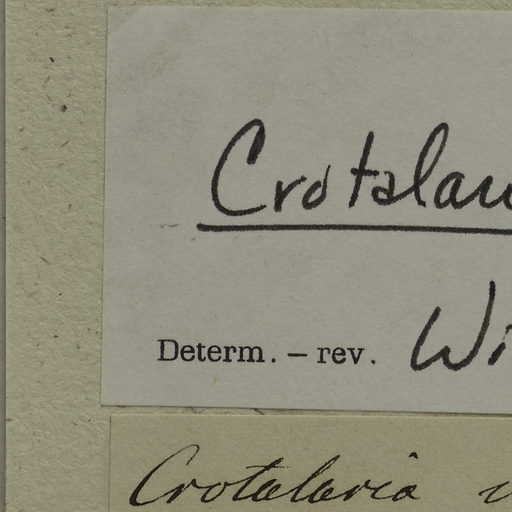 Crotalar
Determ. – rev. Wi
Crotalaria